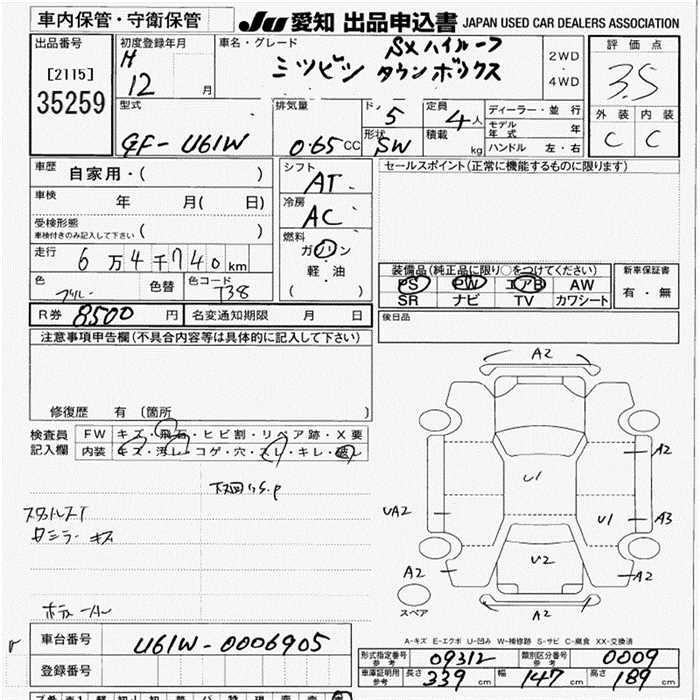 車内保管・守衛保管
JU 愛知 出品申込書 JAPAN USED CAR DEALERS ASSOCIATION
出品番号
[2115]
35259
初度登録年月
H
12 月
車名・グレード
SXハイルーフ
ミツビシ タウンボックス
2WD
・
4WD
評価点
3.5
外装 内装
C C
型式
GF-U61W
排気量
0.65 CC
ド, 5
形状 SW
定員 4人
積載 kg
ディーラー・並行
モデル年式 年
ハンドル 左・右
車歴 自家用・( )
車検 年 月( 日)
受検形態
車検付きのみ記入して下さい ( )
走行 6万4千740km
色 ブルー 色替 色コード T38
シフト
AT
冷房
AC
燃料
ガソリン
軽・油
( )
セールスポイント(正常に機能するものに限ります)
装備品(純正品に限り○をつけてください)
PS PW エアB AW
SR ナビ TV カワシート
新車保証書
有・無
R券 8500 円 名変通知期限 月 日
後日品
注意事項申告欄(不具合内容等は具体的に記入して下さい)
修復歴 有 〔箇所 〕
検査員記入欄
FW キズ・飛石・ヒビ割・リペア跡・X要
内装 キズ・汚レ・コゲ・穴・スレ・キレ・破レ
下回りS.P
キズ
A2
A2
U1
UA2
U1
A3
U2
A2
A2
A2
スペア
A-キズ E-エクボ U-凹み W-補修跡 S-サビ C-腐食 XX-交換済
車台番号 U61W-0006905
登録番号
形式指定番号 参考 09312 類別区分番号 参考 0009
車庫証明用 参考 長さ 339 cm 幅 147 cm 高さ 189 cm